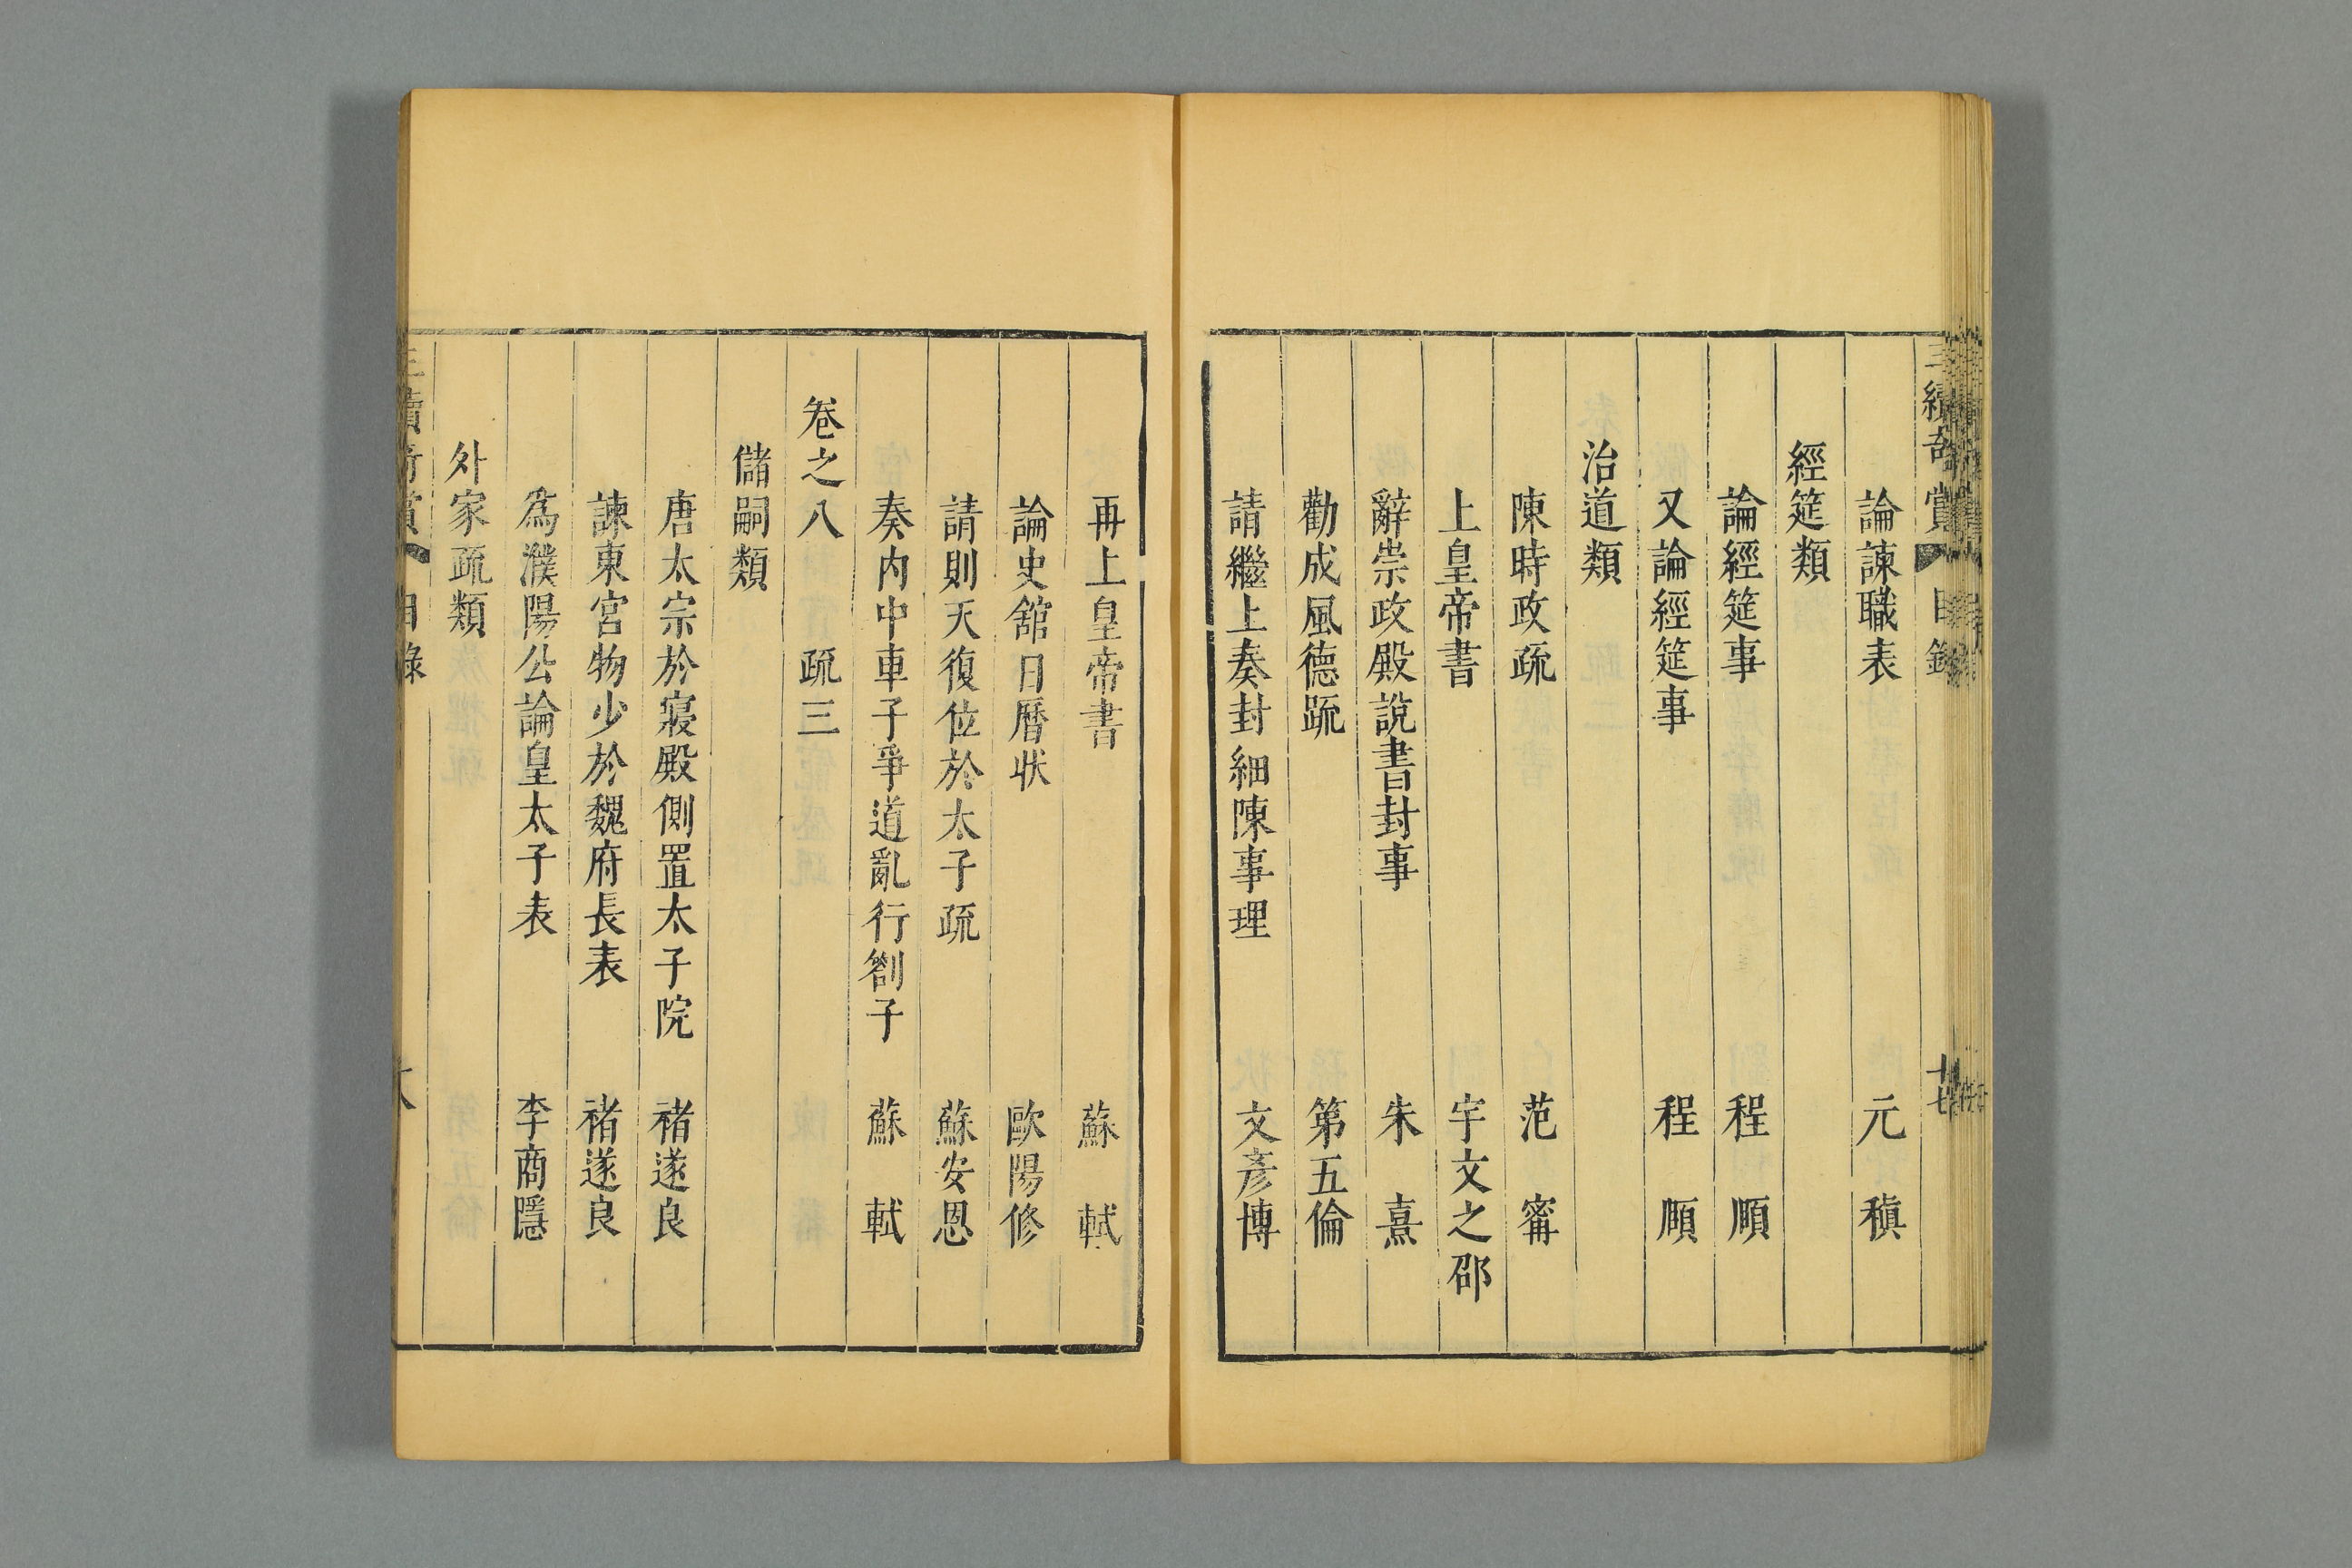 三續奇賞 目錄 十七
論諫職表 元稹
經筵類
論經筵事 程頤
又論經筵事 程頤
治道類
陳時政疏 范甯
上皇帝書 宇文之邵
辭崇政殿說書封事 朱熹
勸成風德疏 第五倫
請繼上奏封細陳事理 文彥博
再上皇帝書 蘇軾
論史舘日曆狀 歐陽修
請則天復位於太子疏 蘇安恩
奏內中車子爭道亂行劄子 蘇軾
卷之八 疏三
儲嗣類
唐太宗於寢殿側置太子院 禇遂良
諫東宮物少於魏府長表 禇遂良
爲濮陽公論皇太子表 李商隱
外家疏類
三續奇賞 目錄